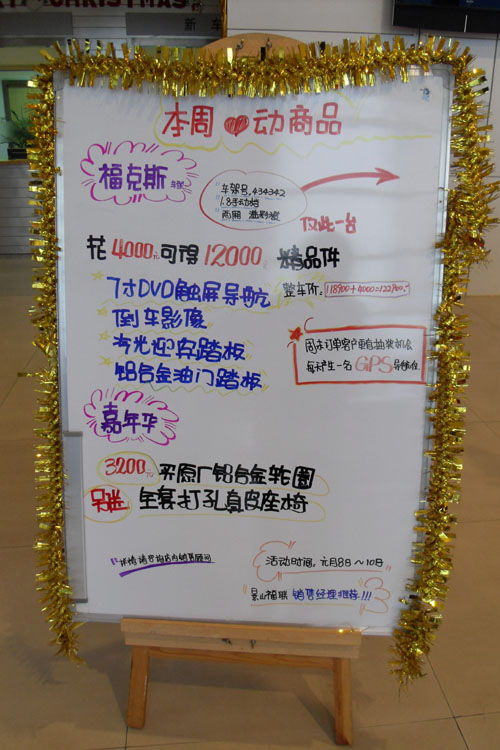 CHRISTMAS
本周 动商品
福克斯
车架号,434342
1.8手动挡
两厢
仅此一台
花4000元可得12000元精品件
7寸DVD触屏导航
倒车影像
汽光迎宾踏板
铝合金油门踏板
整车价,118900+4000=122900.
周末订单客户更有抽奖机会
每天产生一名GPS导航仪
嘉年华
3200元买原厂铝合金轮圈
另送 全套打孔真皮座椅
详情请咨询店内销售顾问
活动时间,元月8日~10日
销售经理推荐!!!